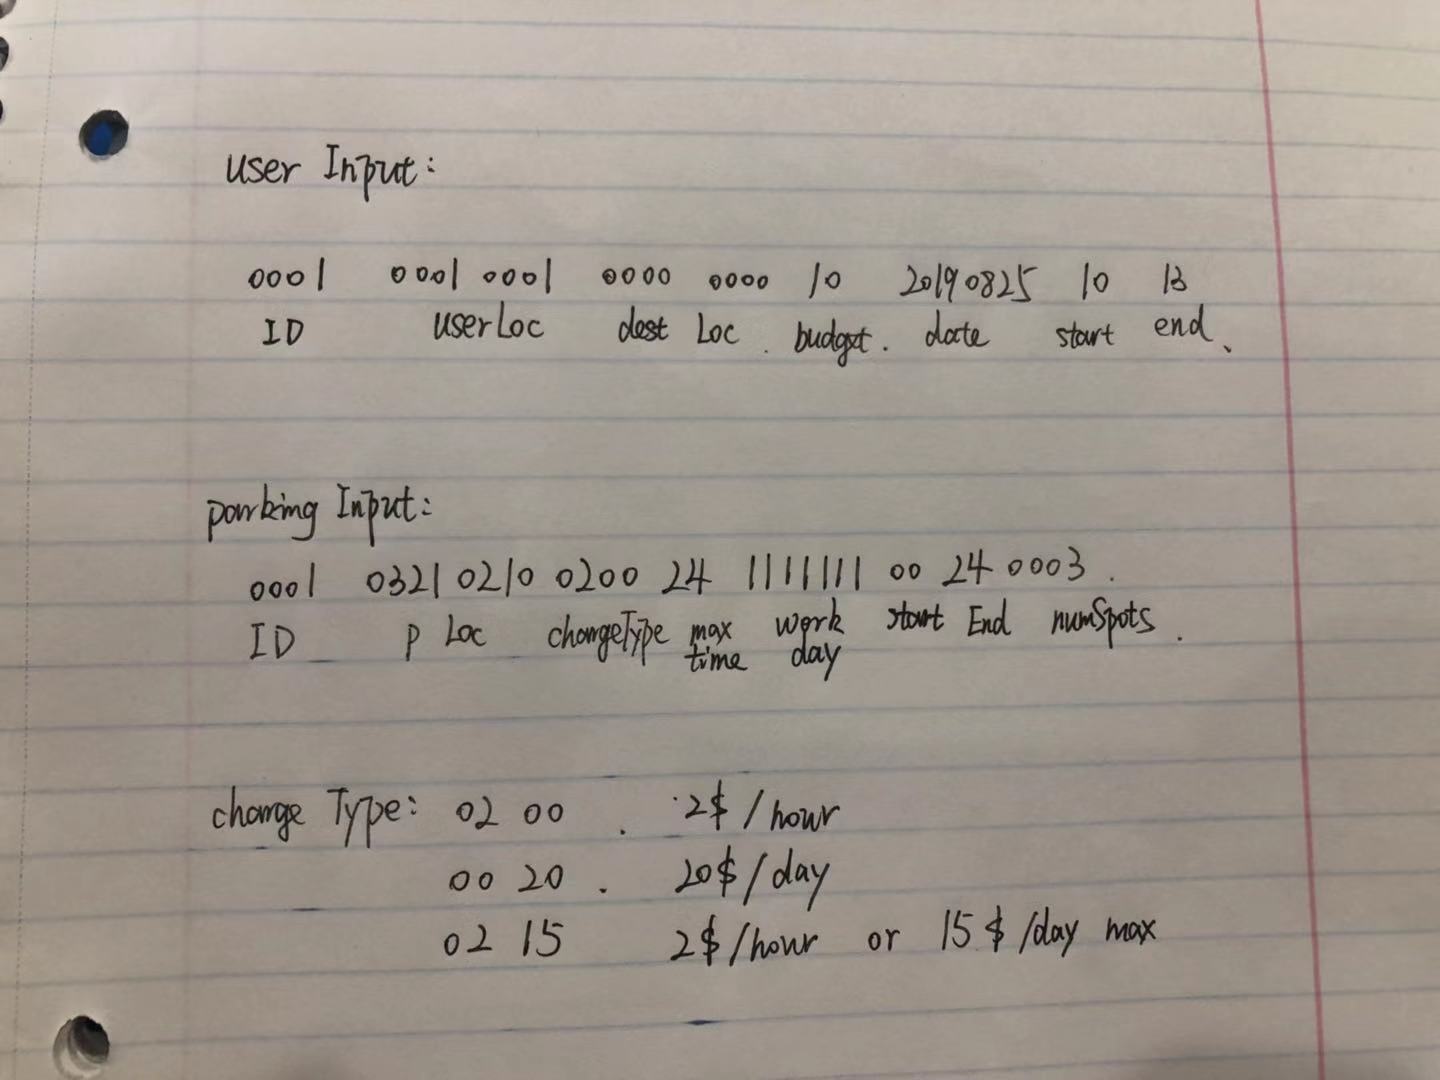 user Input:
0001 0001 0001 0000 0000 10 20190825 10 13
ID userLoc dest Loc . budget . date start end .
parking Input:
0001 0321 0210 0200 24 1111111 00 24 0003 .
ID P Loc chargeType max time work day start End numSpots .
charge Type: 02 00 . 2$/hour
00 20 . 20$/day
02 15 2$/hour or 15$/day max